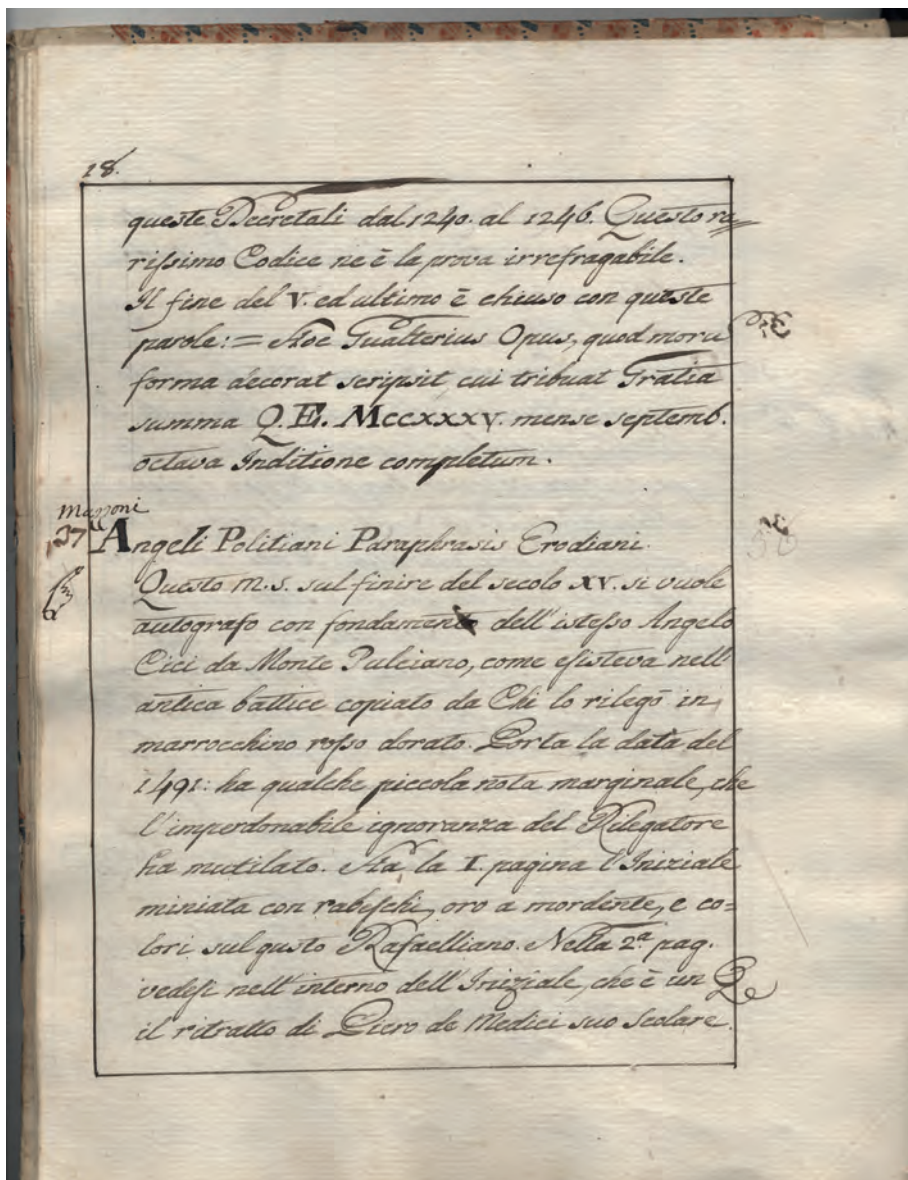 18.
queste Decretali dal 1240. al 1246. Questo ra=
rissimo Codice ne è la prova irrefragabile.
Il fine del V. ed ultimo è chiuso con queste
parole: = Hoc Gualterius Opus, quod moru
forma decorat scripsit, cui tribuat Gratia
summa Q. E. MCCXXXV. mense septemb.
octava Inditione completum.
Mazzoni
137 Angeli Politiani Paraphrasis Erodiani.
Questo m.s. sul finire del secolo XV. si vuole
autografo con fondamento dell'istesso Angelo
Cici da Monte Pulciano, come esisteva nell'
antica battice copiato da Chi lo rilegò in
marrocchino rosso dorato. Porta la data del
1491: ha qualche piccola nota marginale, che
l'imperdonabile ignoranza del Rilegatore
ha mutilato. Ha la I. pagina l'Iniziale
miniata con rabeschi, oro a mordente, e co=
lori sul gusto Rafaelliano. Nella 2ª pag.
vedesi nell'interno dell'Iniziale, che è un Q
il ritratto di Piero de Medici suo Scolare.